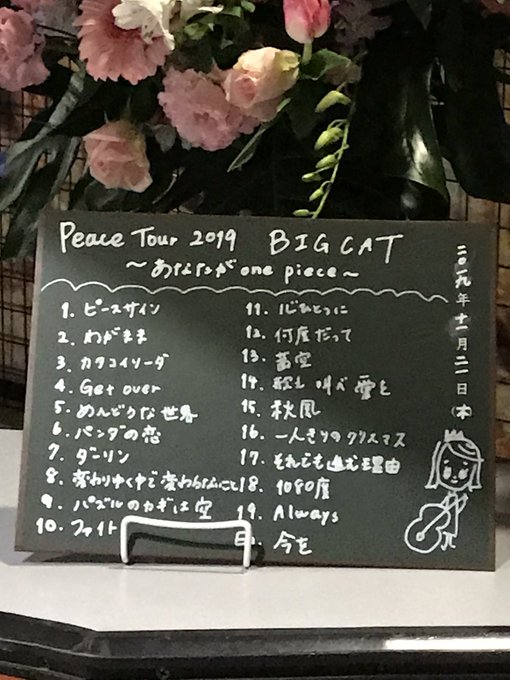 Peace Tour 2019 BIGCAT
～あなたが one piece～
二〇一九年十一月二一日(木)
1. ピースサイン
2. わがまま
3. カタコイソーダ
4. Get over
5. めんどうな世界
6. パンダの恋
7. ダーリン
8. 変わりゆく中で変わらないこと
9. パズルのカギは空
10. ファイト
11. 心ひとつに
12. 何度だって
13. 蕾空
14. 歌え 叫べ 愛を
15. 秋風
16. 一人きりのクリスマス
17. それでも進む理由
18. 1080度
19. Always
今を